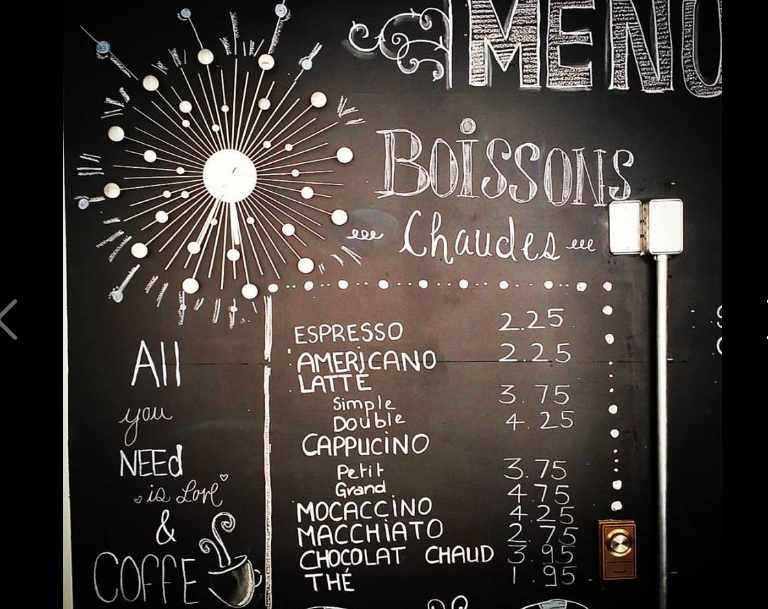 MENU
BOISSONS
Chaudes
ESPRESSO 2.25
AMERICANO 2.25
LATTÉ
Simple 3.75
Double 4.25
CAPPUCINO
Petit 3.75
Grand 4.75
MOCACCINO 4.25
MACCHIATO 2.75
CHOCOLAT CHAUD 3.95
THÉ 1.95
All
you
NEEd
is Love
&
COFFE